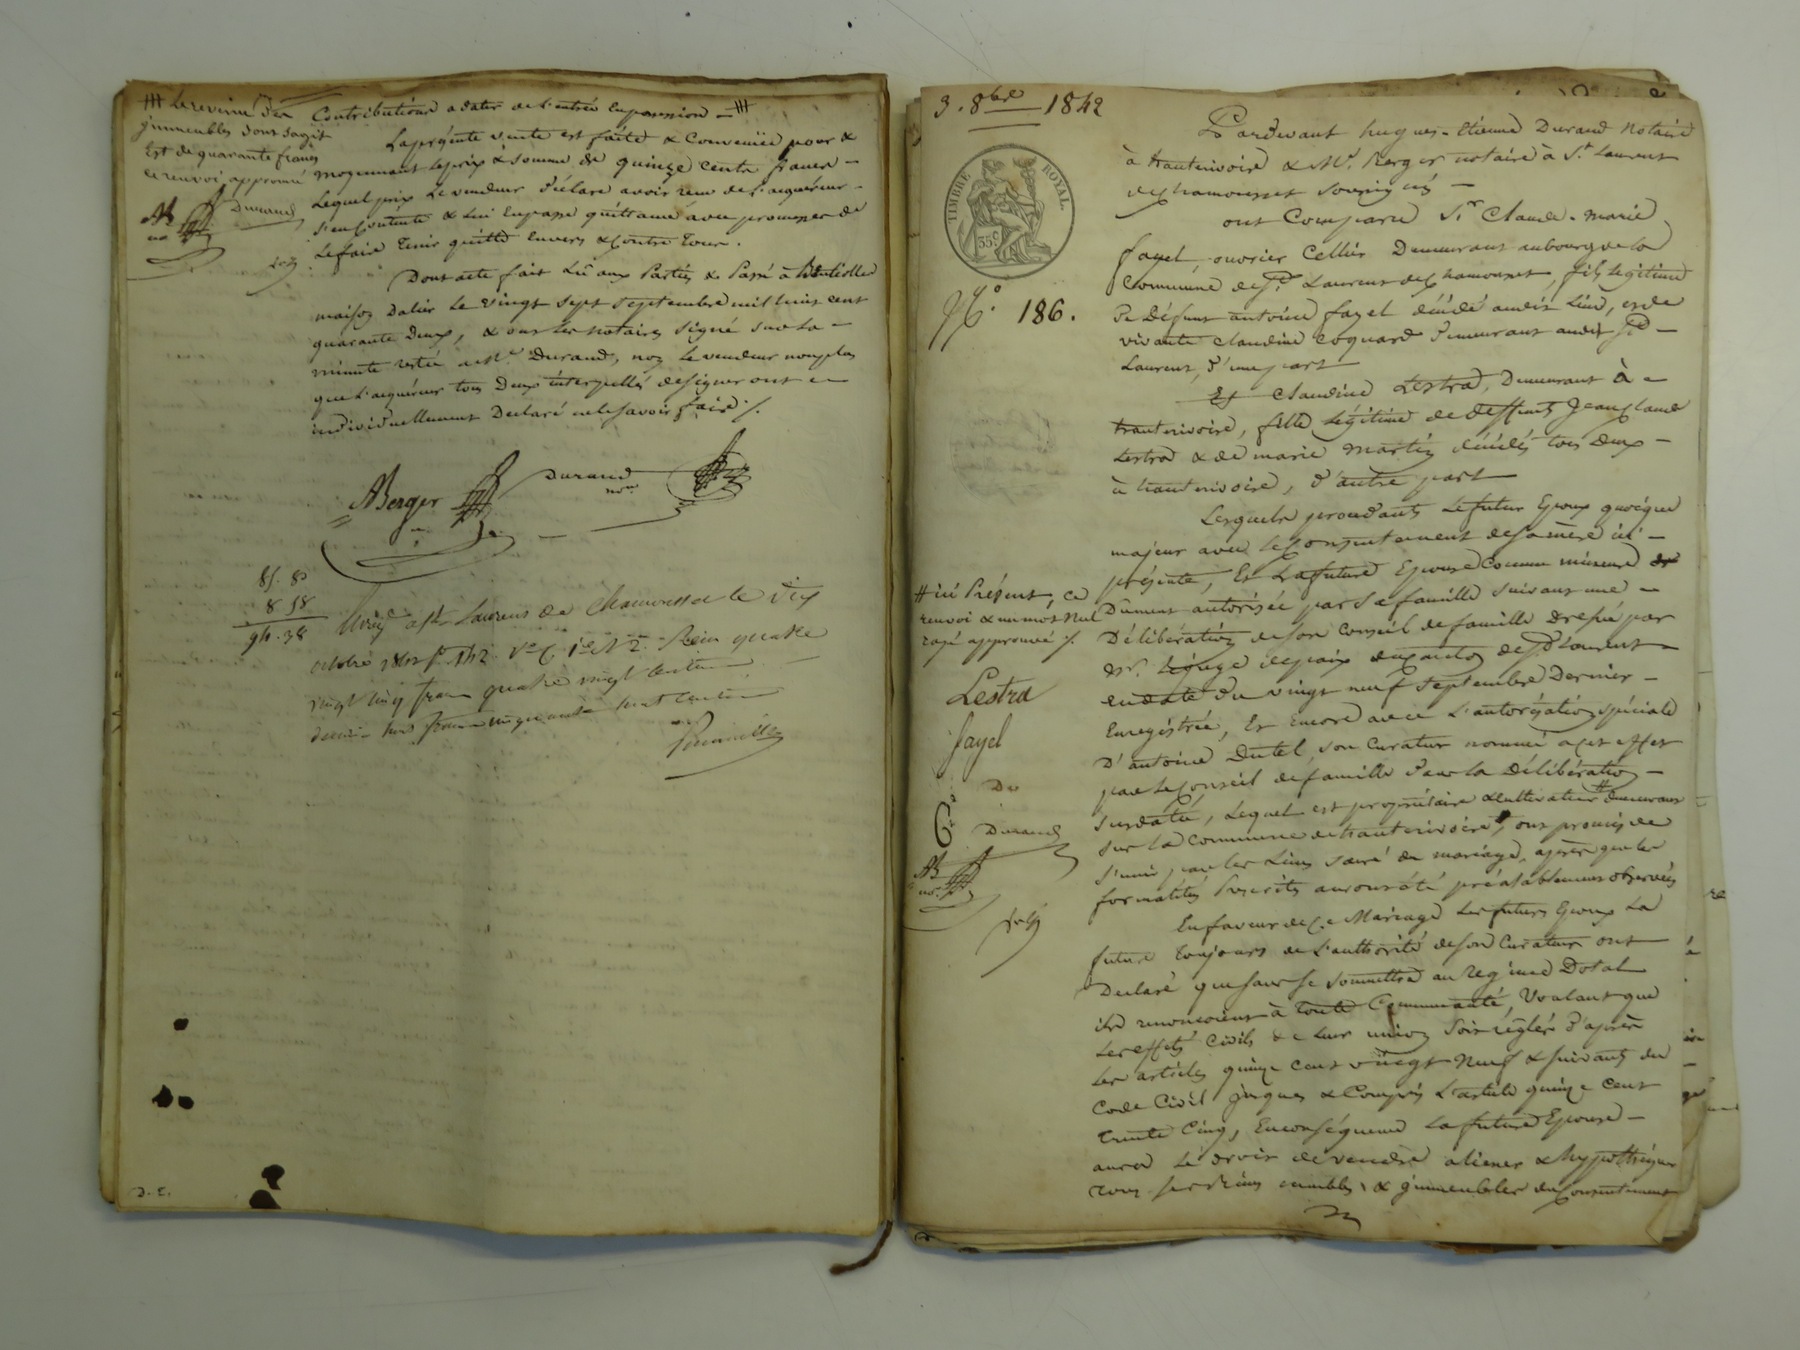 # Le revenu des
jmmeubles dont sagit
Est de quarante francs
ce renvoi approuvé
AB Durand
no
Contributions a dater de l'entrée en possession — #
La présente vente est faite & Convenüe pour &
moyennant le prix & somme de quinze cents francs —
Lequel prix Le vendeur déclare avoir reçu de l'acquéreur —
s'en Contente & lui En passe quittance avec promesse de
Le faire tenir quitte Envers & Contre tous.
Dont acte fait Lu aux Parties & Passé à
maison dalier Le vingt sept septembre mil huit cent
quarante Deux, & ont les notaires signé sur la —
minute restée a Me Durand, non le vendeur non plus
que l'acquéreur tous Deux interpellés de signer ont —
individuellement Declaré ne le savoir faire ./.
ABerger Durand
nore
85. 80
8 58
94. 38
Enrég a St Laurent de Chamousset le dix
octobre 1842 fo 142 Vo C. 1e & 2. Reçu quatre
vingt cinq francs quatre vingt centimes
decime huit francs cinquante huit centimes
D. E.
3. 8bre 1842
TIMBRE ROYAL.
35c
No. 186.
Pardevant hugues-Etienne Durand Notaire
à hauterivoire & Me. Berger notaire à St Laurent
de chamousset soussignés —
ont Comparu Sr. Claude-Marie
fayel, ouvrier Cellier Demeurant au bourg de la
Commune de St. Laurent de chamousset, fils légitime
De Défunt antoine fayel décédé audit Lieu, et de
vivante claudine Coquard Demeurant audit St. —
Laurent, d'une part
Et Claudine Lestra, Demeurant à —
hauterivoire, fille légitime de deffunts Jean Claude
Lestra & de marie Martin décédés tous deux —
à hauterivoire, d'autre part
Lesquels procédants Le futur Epoux quoique
majeur avec le Consentement de sa mère ici —
présente, Et La future Epouse Comme mineure
Dûment autorisée par sa famille suivant une —
Délibération de son Conseil de famille Dressé par
Mr. juge de paix du canton de St. Laurent —
en date du vingt neuf septembre Dernier —
Enregistrée, Et Encore avec l'autorisation spéciale
D'antoine Dutel, son Curateur nommé a cet effet
par le Conseil de famille dans la délibération —
susdatée, Lequel est propriétaire & cultivateur # demeurant
sur la Commune de hauterivoire, ont promis de
s'unir par les Liens sacré du mariage, après que les
formalités prescrites auront été préalablement observées
# ici Présent, ce
renvoi & un mot Nul
rayé approuvé ./.
Lestra
fayel
Du
Durand
AB
no
En faveur de Ce Mariage Les futurs Epoux La
future toujours de L'authorité de son Curateur ont
Declaré que sans se soumettre au Regime Dotal
ils renoncoient à toute Communauté, Voulant que
Les effets Civils de leur union soit réglés d'après
Les articles quinze cent vingt Neuf & suivants du
Code Civil jusques & Compris L'article quinze cent
trente Cinq, En conséquence La future Epouse —
aura Le droit de vendre aliener & hypothéquer
tous ses biens meubles & jmmeubles du Consentement